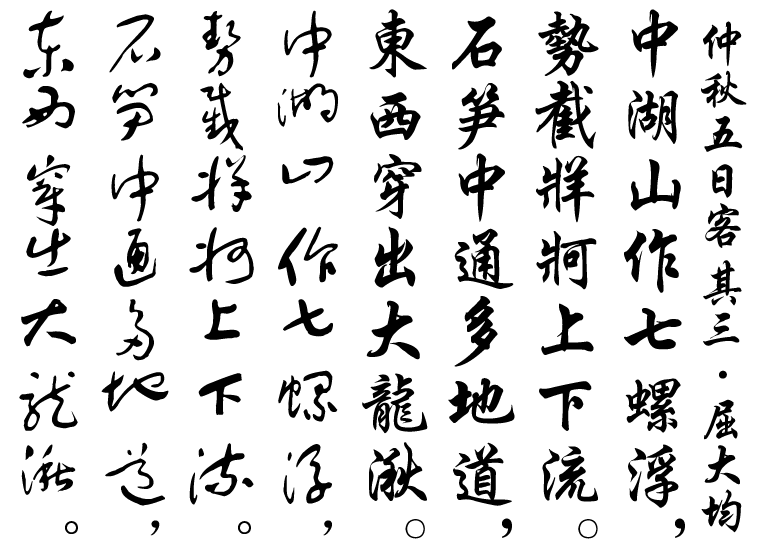 仲秋五日客其三·屈大均
中湖山作七螺浮，
勢截牂牁上下流。
石笋中通多地道，
東西穿出大龍湫。
中湖山作七螺浮，
勢截牂牁上下流。
石笋中通多地道，
東西穿出大龍湫。